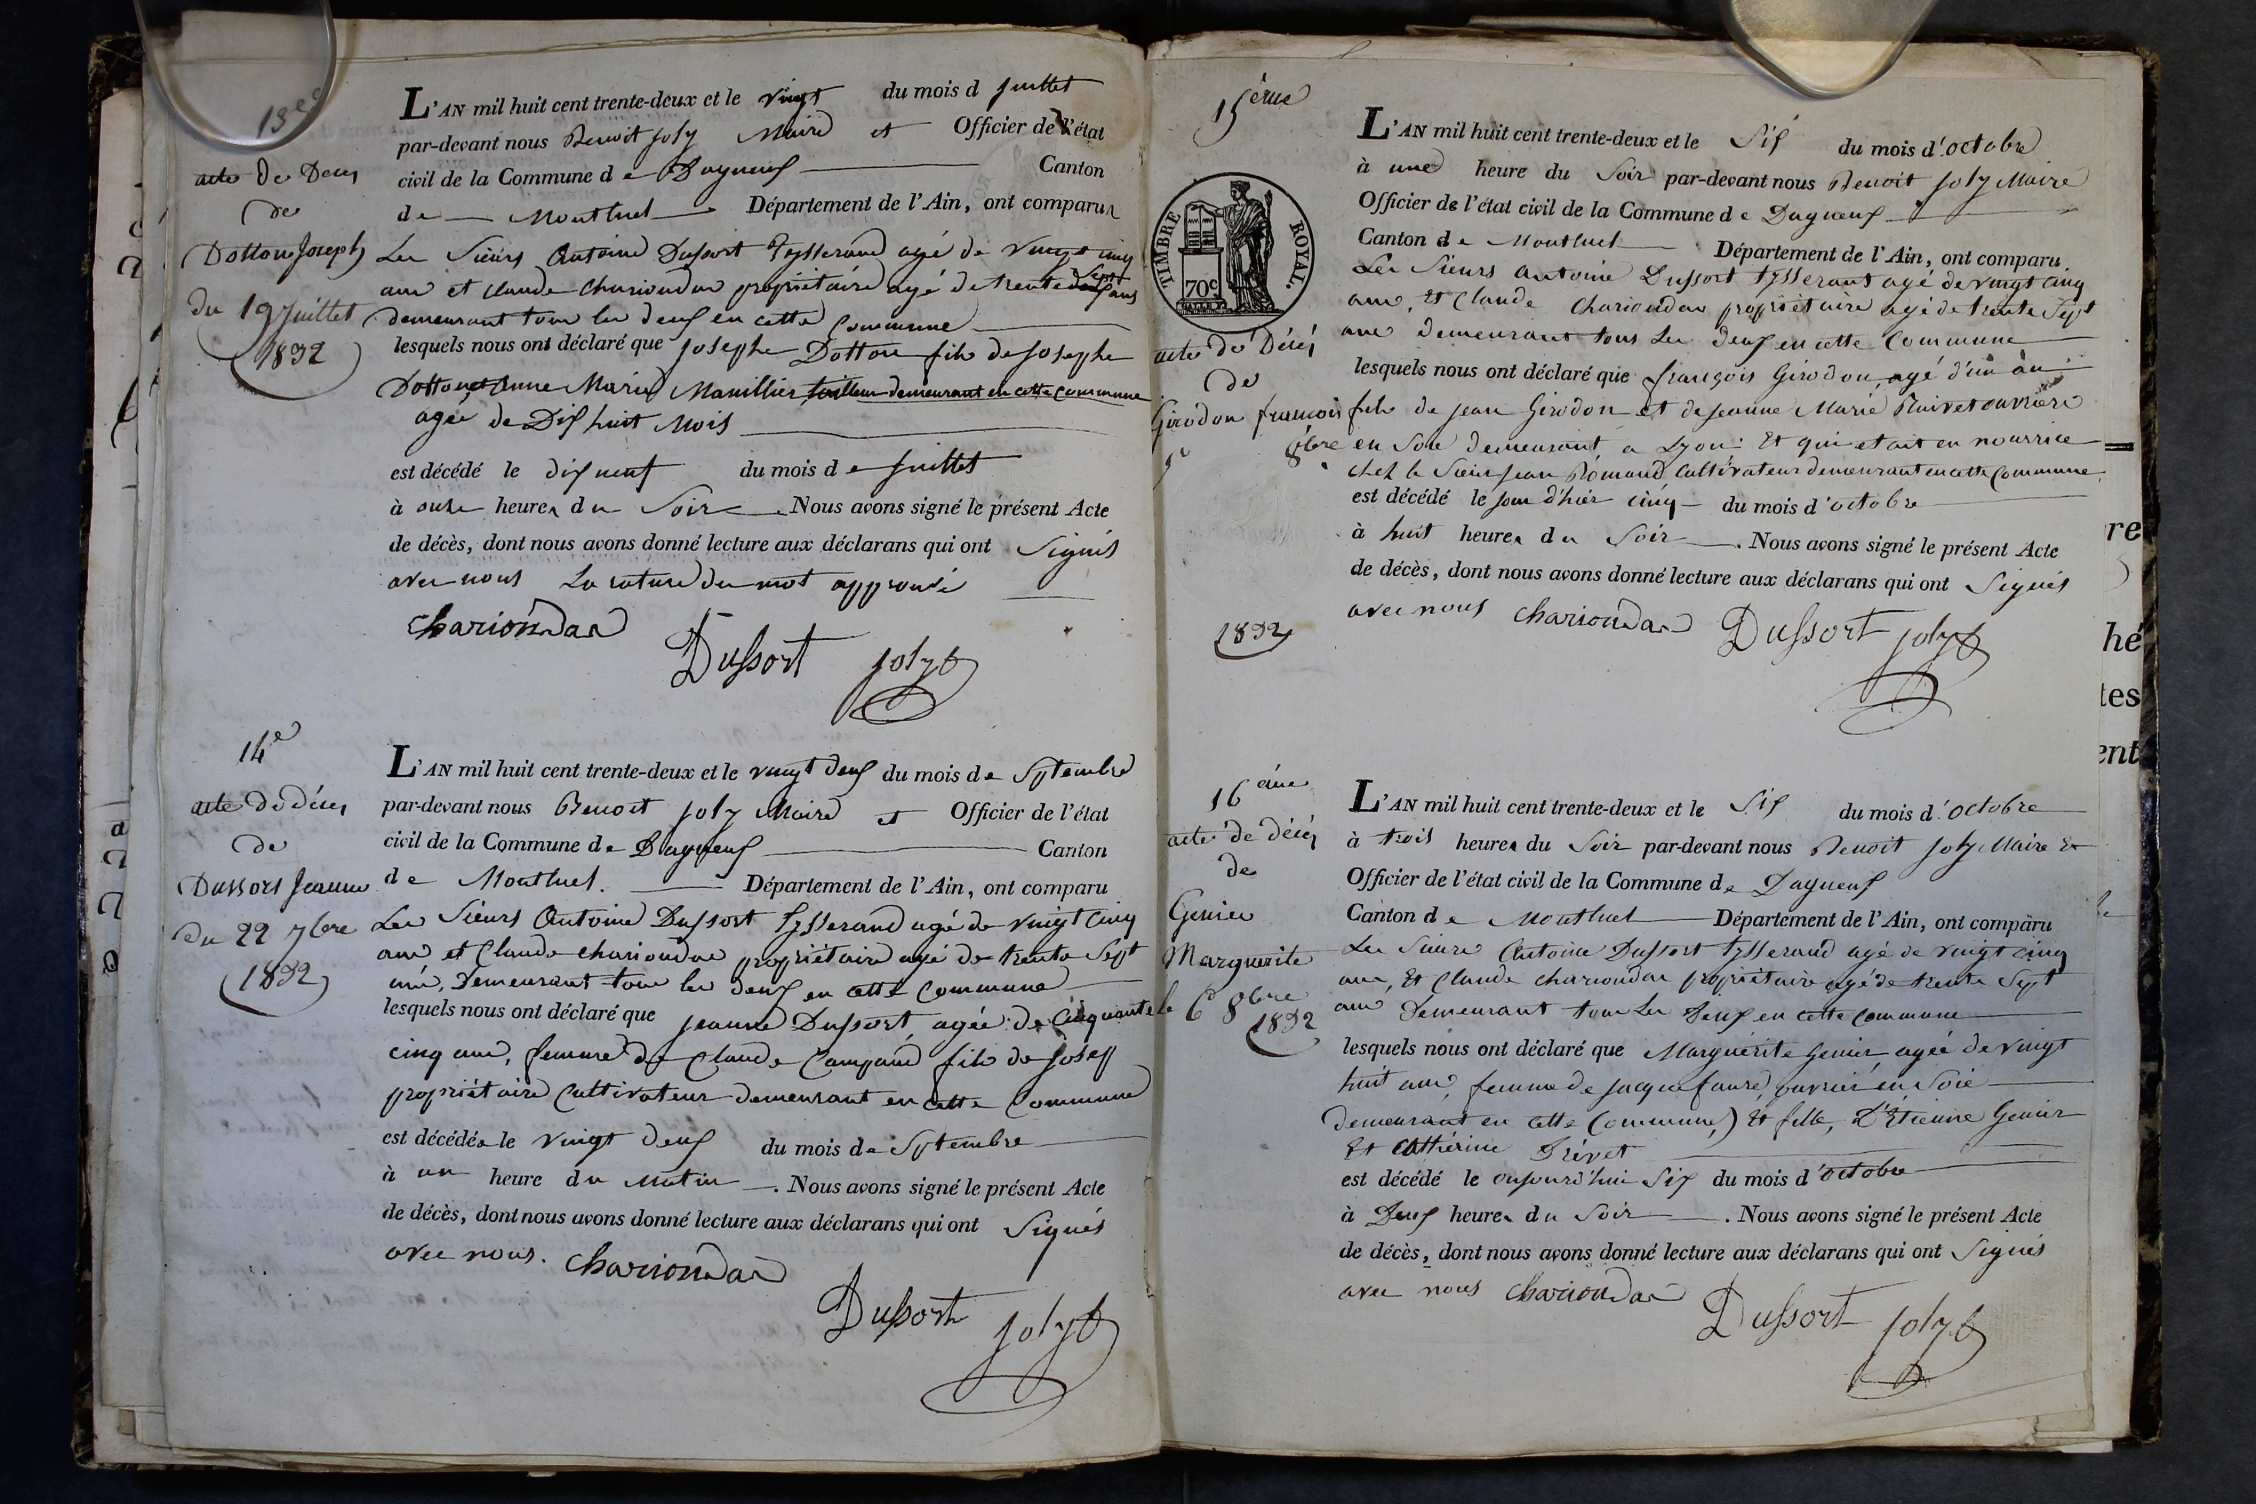 13e
acte de Deces
de
Dottou Joseph
du 19 Juillet
1832
L'AN mil huit cent trente-deux et le vingt du mois d Juillet
par-devant nous Benoit Joly Maire et Officier de l'état
civil de la Commune de Dagneux Canton
de Montluel Département de l'Ain, ont comparu
Les Sieurs Antoine Dussort Tysserand agé de vingt cinq
ans et Claude Chariondar propriétaire agé de trente sept ans
demeurant tous les deux en cette Commune
lesquels nous ont déclaré que Josephe Dottou fils de Josephe
Dottou et Anne Marie Manillier tailleur demeurant en cette commune
agée de Dix huit Mois
est décédé le dix neuf du mois de Juillet
à onze heures du Soir. Nous avons signé le présent Acte
de décès, dont nous avons donné lecture aux déclarans qui ont Signés
avec nous La rature du mot approuvé
Chariondar
Dussort Joly B
14e
acte de décés
de
Dussort Jeanne
du 22 7bre
1832
L'AN mil huit cent trente-deux et le vingt deux du mois de Septembre
par-devant nous Benoit Joly Maire et Officier de l'état
civil de la Commune de Dagneux Canton
de Montluel. Département de l'Ain, ont comparu
Les Sieurs Antoine Dussort Tysserand agé de vingt cinq
ans et Claude Chariondar propriétaire agé de trente Sept
ans, Demeurant tous les deux en cette Commune
lesquels nous ont déclaré que Jeanne Dussort, agée de Cinquante
cinq ans, femme de Claude Campand fils de Josepf
propriétaire Cultivateur demeurant en cette Commune
est décédée le vingt deux du mois de Septembre
à un heure du Matin. Nous avons signé le présent Acte
de décès, dont nous avons donné lecture aux déclarans qui ont Signés
avec nous. Chariondar
Dussort Joly B
15éme
TIMBRE ROYAL.
70c
acte de Décés
de
Girodon francois
5 8bre
1832
L'AN mil huit cent trente-deux et le Six du mois d'octobre
à une heure du Soir par-devant nous Benoit Joly Maire
Officier de l'état civil de la Commune de Dagneux
Canton de Montluel Département de l'Ain, ont comparu
Les Sieurs Antoine Dussort tysserant agé de vingt cinq
ans, Et Claude Chariondar propriétaire agé de trente Sept
ans Demeurant tous Les deux en cette Commune
lesquels nous ont déclaré que françois Girodon, agé d'un an
fils de Jean Girodon et de Jeanne Marie Buivet ouvriere
en Soie demeurant a Lyon: Et qui etait en nourrice
chez le Sieur Jean Romand, Cultivateur demeurant en cette Commune.
est décédé le Jour d'hier cinq du mois d'octobre
à huit heures du Soir. Nous avons signé le présent Acte
de décès, dont nous avons donné lecture aux déclarans qui ont Signés
avec nous Chariondar Dussort Joly B
16éme
acte de décés
de
Genier
Marguerite
le 6 8bre
1832
L'AN mil huit cent trente-deux et le Six du mois d'octobre
à trois heures du Soir par-devant nous Benoit Joly Maire Et
Officier de l'état civil de la Commune de Dagneux
Canton de Montluel Département de l'Ain, ont comparu
Les Sieurs Antoine Dussort tysserand agé de vingt cinq
ans, Et Claude Chariondar propriétaire agé de trente Sept
ans Demeurant tous Les Deux en cette Commune
lesquels nous ont déclaré que Marguérite Genier, agée de vingt
huit ans, femme de Jacque faure, ouvrier en Soie
demeurant en cette Commune,) Et fille, D'Etienne Genier
Et Cathérine Trévet
est décédé le aujourd'hui Six du mois d'octobre
à Deux heures du Soir. Nous avons signé le présent Acte
de décès, dont nous avons donné lecture aux déclarans qui ont Signés
avec nous Chariondar Dussort Joly B